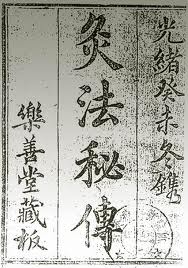 光緒癸未冬鐫
灸法秘傳
樂善堂藏板